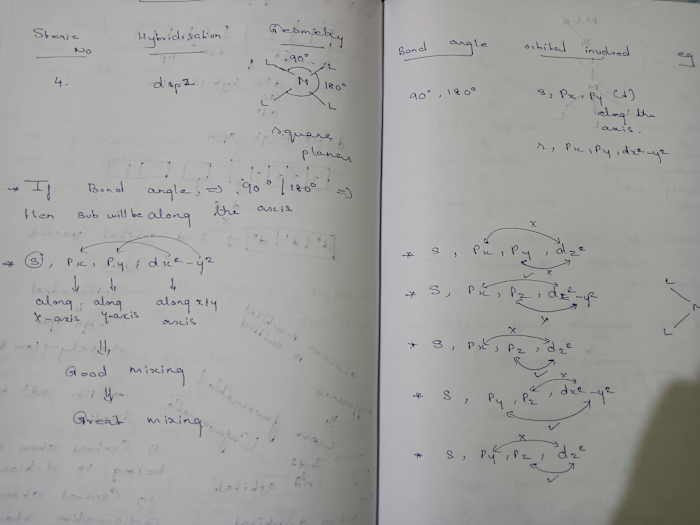 Steric No
Hybridisation
Geometry
4.
dsp2
90°
L L
M 180°
L L
square
planar
→ If Bond angle ⇒ 90° | 180° ⇒
then sub will be along the axis.
* S, Px, Py, dx²-y²
along along along x/y
x-axis y-axis axis
Good mixing
Great mixing
Bond angle
orbital involved
eg
90°, 180°
s, Px, Py (d)
along the
axis.
s, Px, Py, dx²-y²
x
* S, Px, Py, dz²
✓ x
* S, Px, Pz, dx²-y²
x
x
* S, Px, Pz, dz²
✓
x
* S, Py, Pz, dx²-y²
✓
x
* S, Py, Pz, dz²
✓
L
M
L